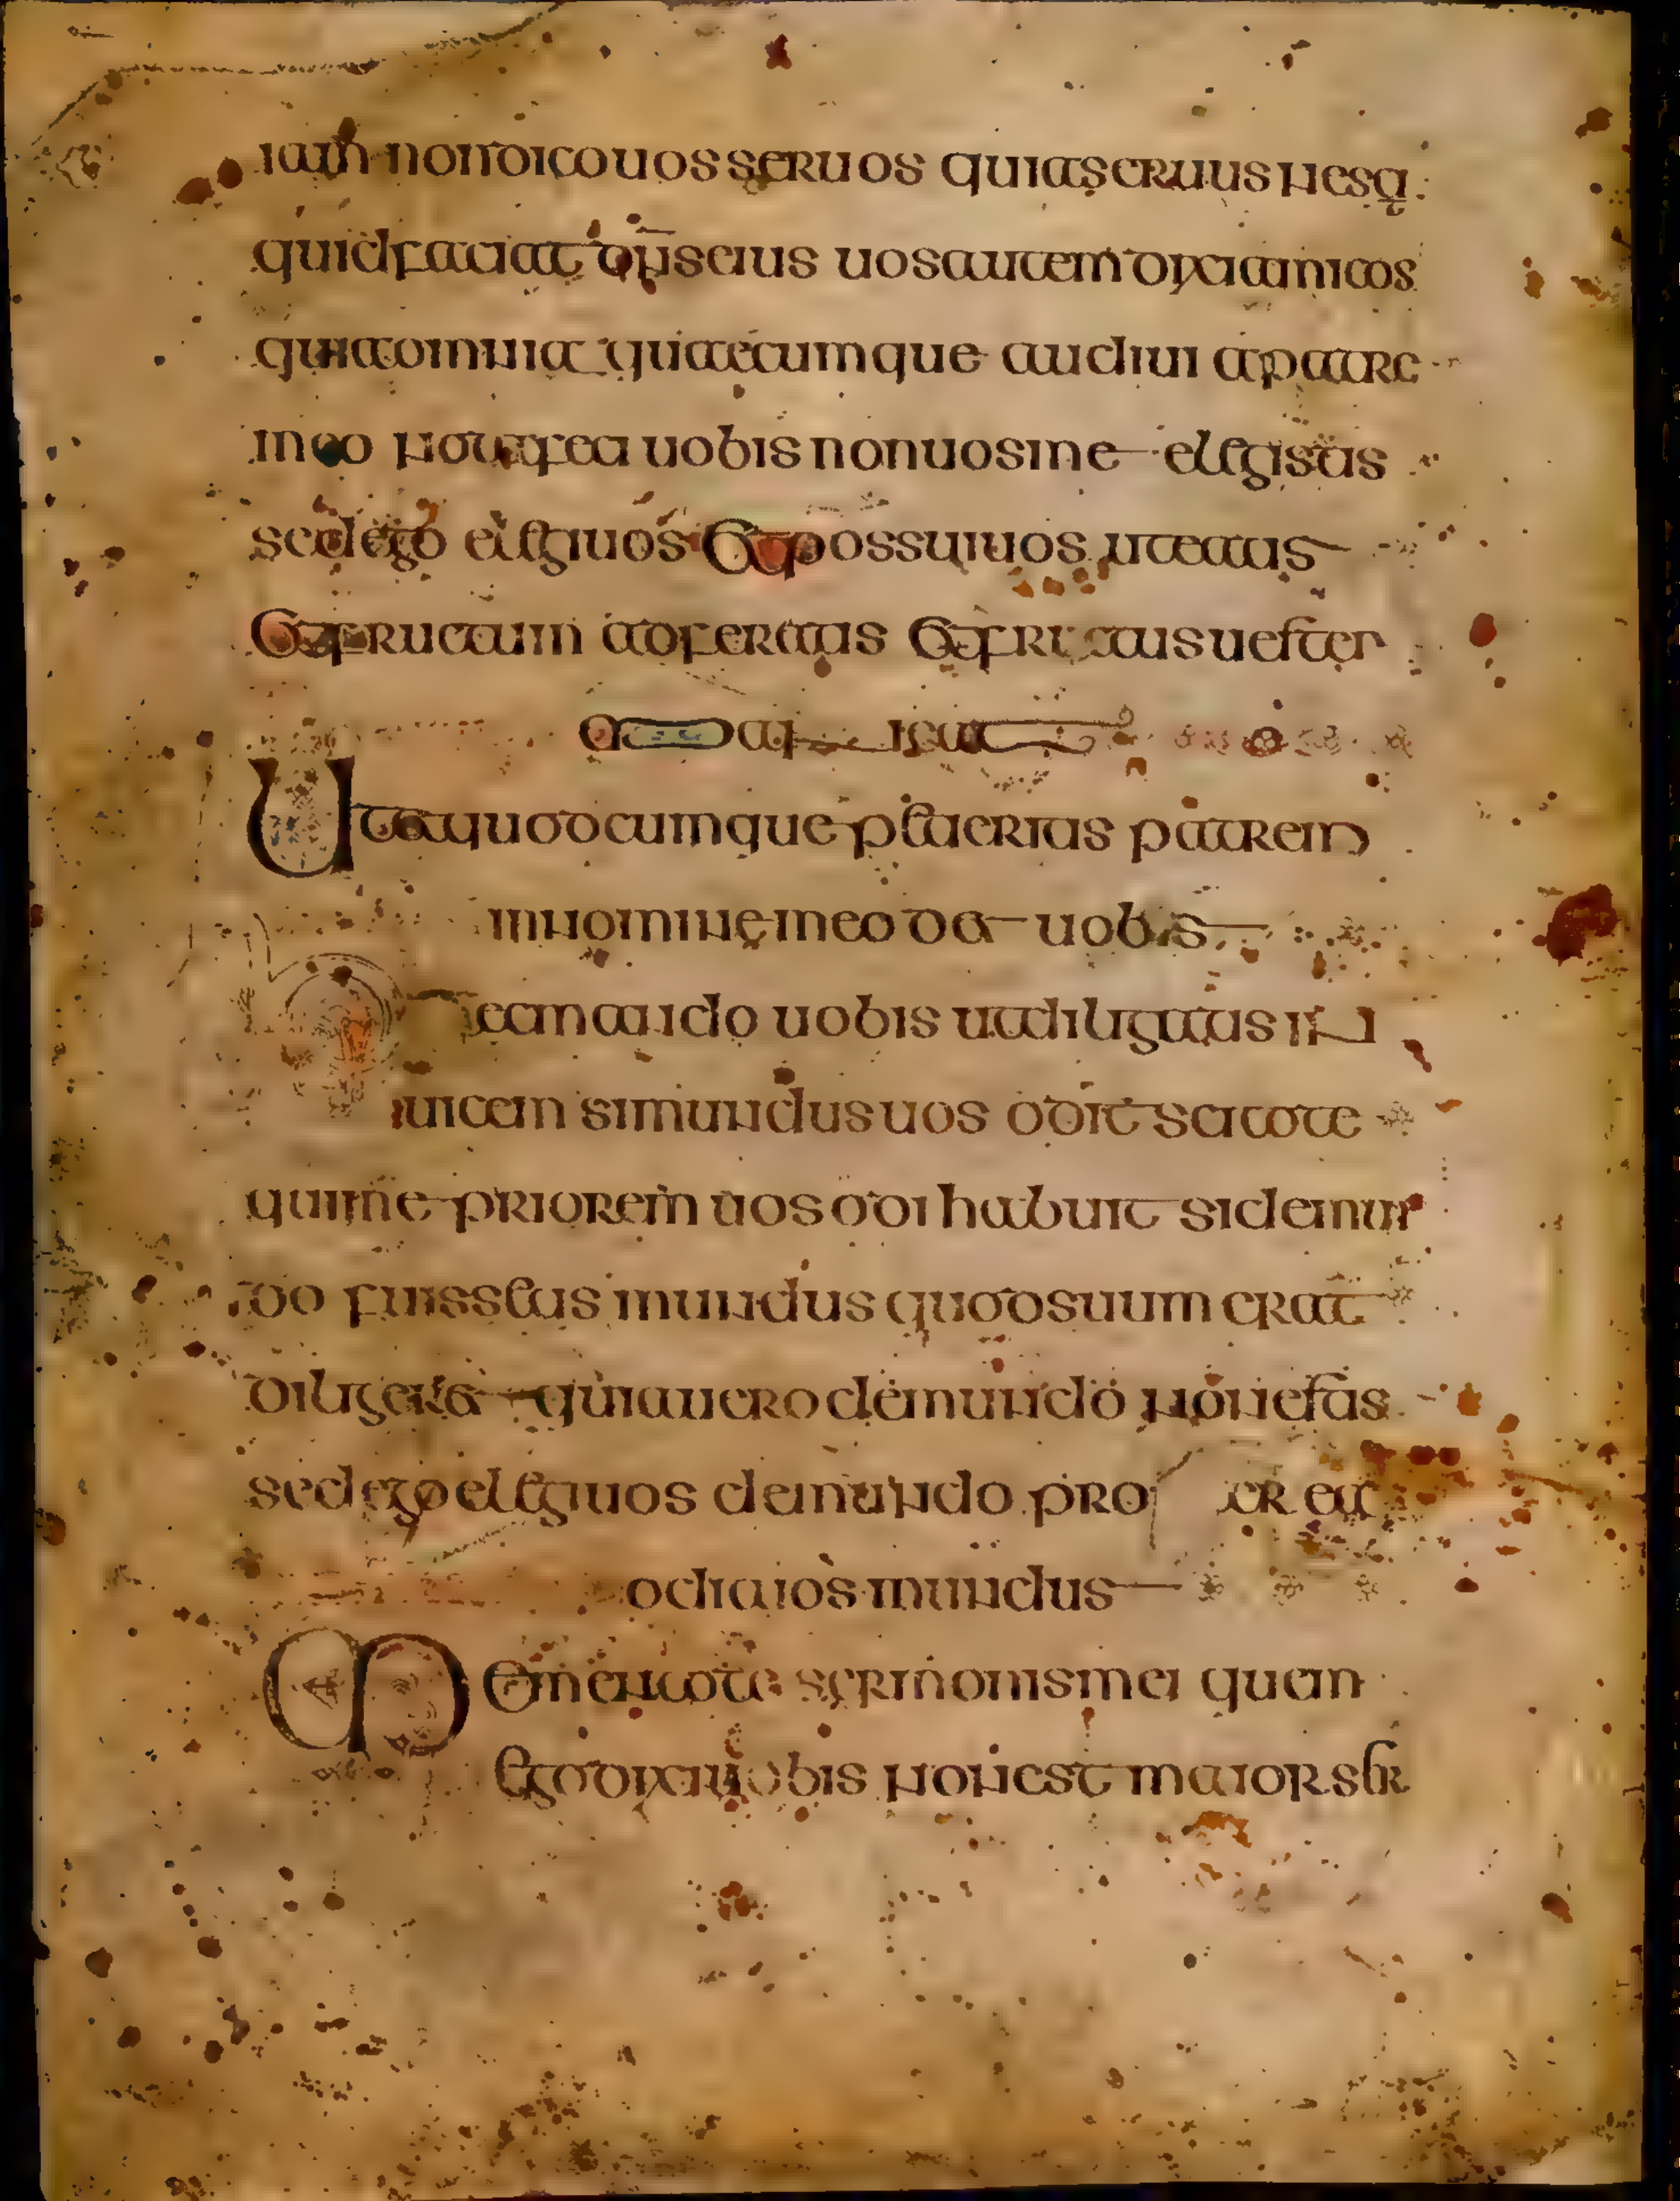 iam non dico uos seruos quia seruus nesq
quid faciat dns eius uos autem dixi amicos
quia omnia quaecumque audiui a patre
meo nota feci uobis non uos me elegistis
sed ego elegi uos et possui uos ut eatis
et fructum adferatis et fructus uester
maneat
Ut quodcumque petieritis patrem
in nomine meo det uobis
Haec mando uobis ut diligatis in
uicem si mundus uos odit scitote
quia me priorem uos odi habuit si de mun
do fuissetis mundus quod suum erat
diligeret quia uero de mundo non estis
sed ego elegi uos de mundo propter ea
odit uos mundus
Mementote sermonis mei quem
ego dixi uobis non est maior ser